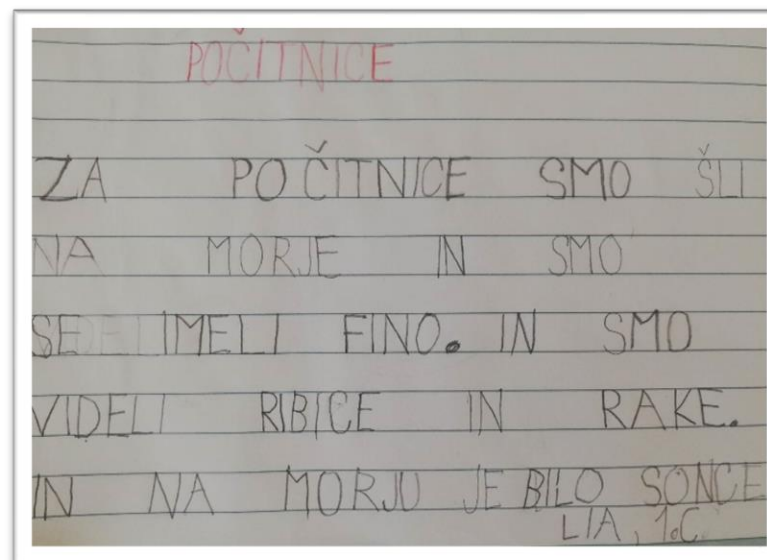 POČITNICE
ZA POČITNICE SMO ŠLI
NA MORJE IN SMO
SE IMELI FINO. IN SMO
VIDELI RIBICE IN RAKE.
IN NA MORJU JE BILO SONCE
LIA, 1.C